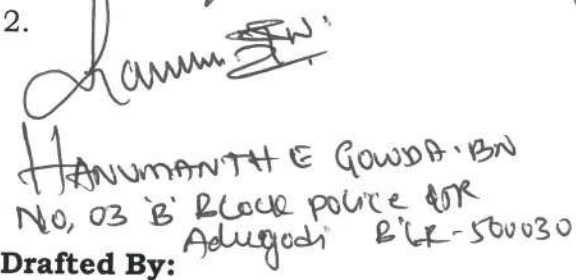 2.
HANUMANTHE GOWDA. BN
No, 03 'B' BLOCK police QTR
Adugodi B'LR-560030
Drafted By: